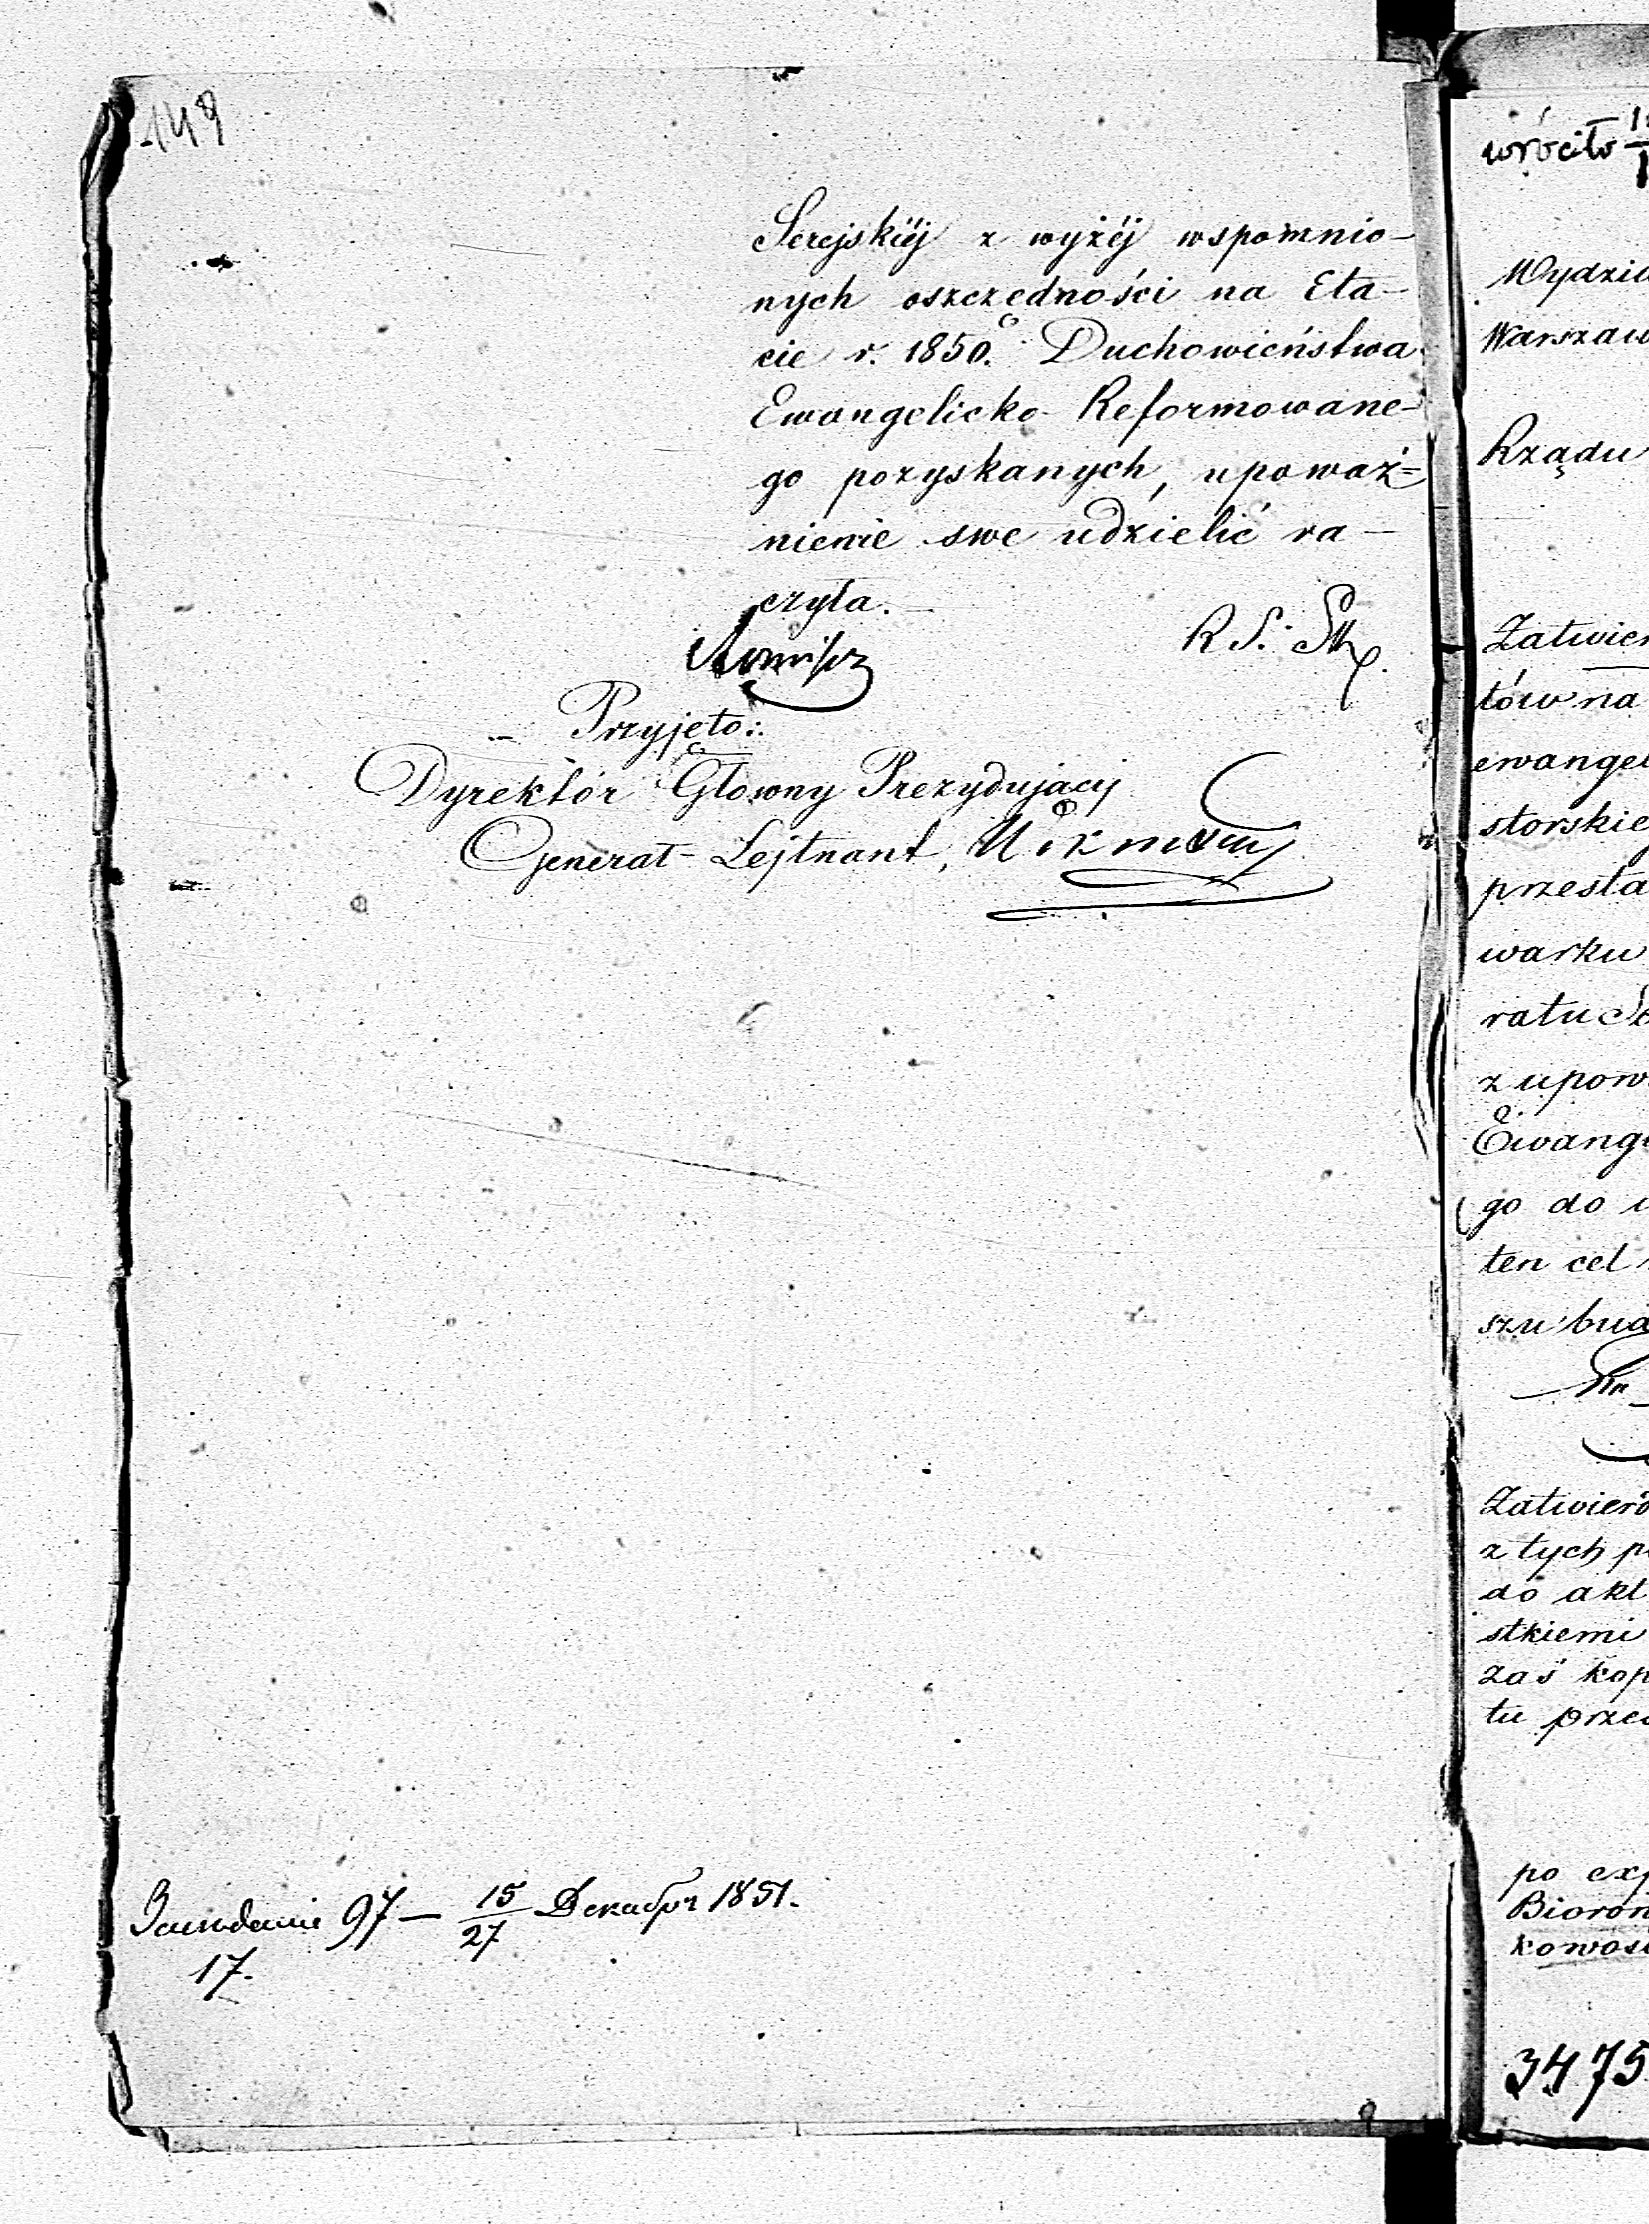 149
Serejskiéj z wyżéj wspomnio-
nych oszczędności na Eta-
cie r. 1850. Duchowieństwa
Ewangelicko-Reformowane-
go pozyskanych, upoważ=
nienie swe udzielić ra-
czyła.
R S.
Przyjęto:
Dyrektór Główny Prezydujący
Generał-Lejtnant,
Заседание 97 — 15/27 Декабря 1851.
17.
wróciło
Wydzia
Warszaw
Rządu
Zatwier
tów na
ewangel
storskie
przesła
warku
ratu
z upow
Ewang
go do
ten cel
szu bud
Zatwierd
z tych p
do akt
stkiemi
zaś kop
tu przed
po exp
Bioron
kowos
3475